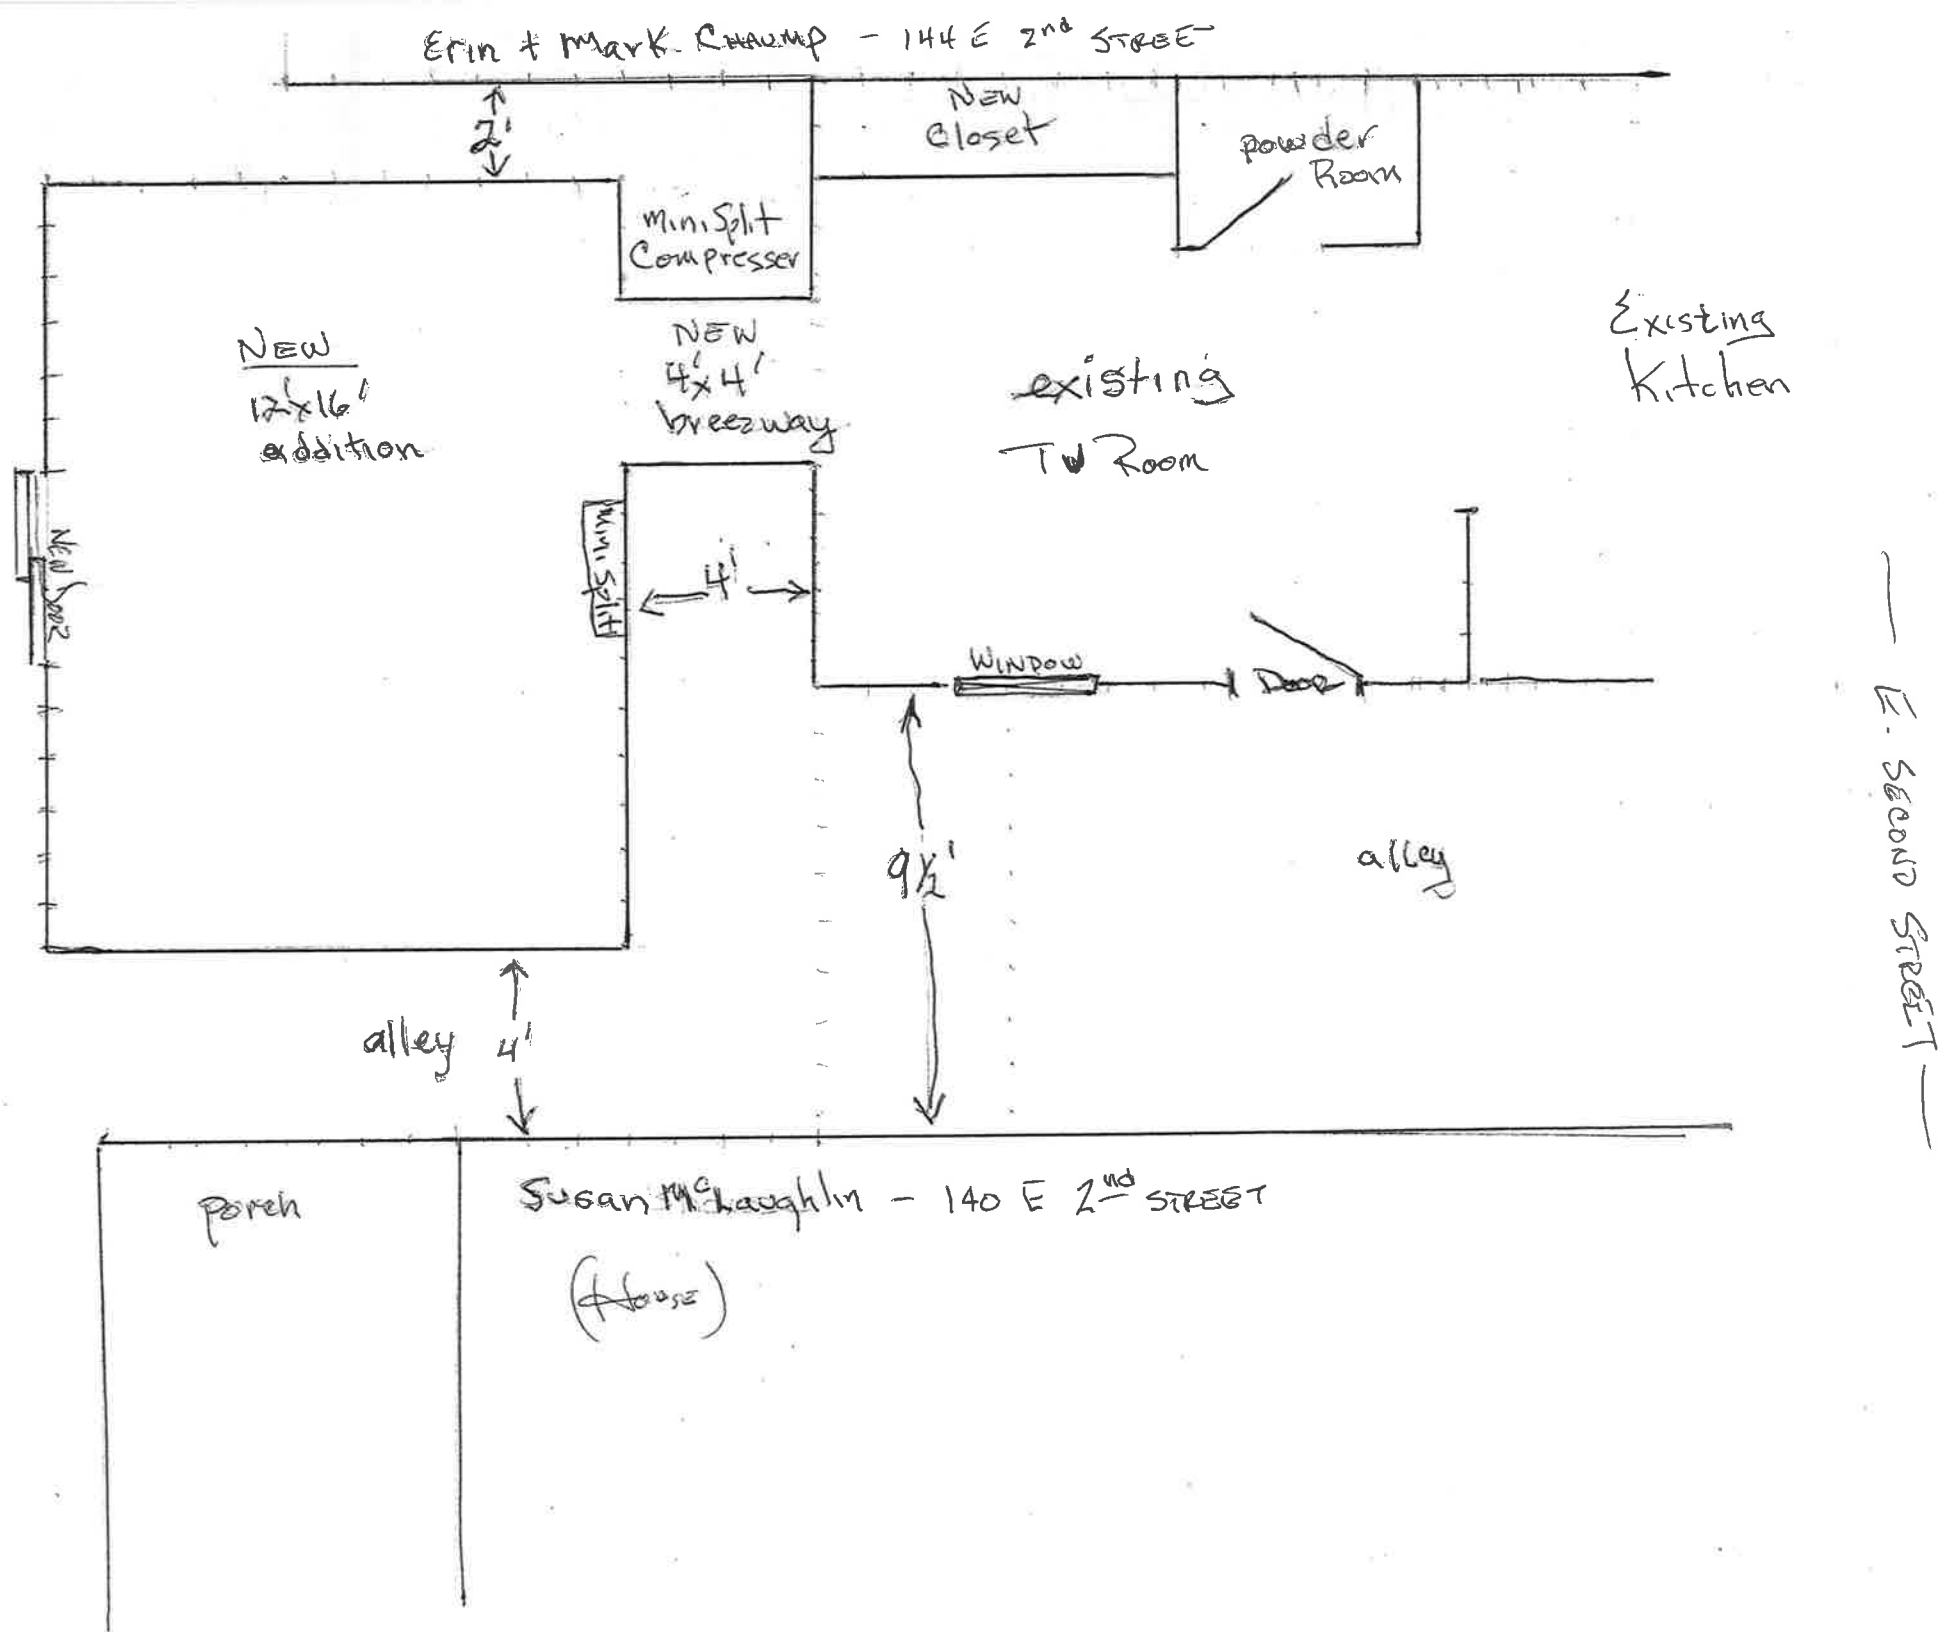 Erin + Mark CHAUMP - 144 E 2nd STREET
2'
NEW
Closet
powder
Room
mini Split
Compresser
NEW
12'x16'
addition
NEW
4'x4'
breezway
existing
TV Room
Existing
Kitchen
NEW DOOR
mini Split
4'
WINDOW
DOOR
9½'
alley
— E. SECOND STREET —
alley 4'
porch
Susan McLaughlin - 140 E 2nd STREET
(House)